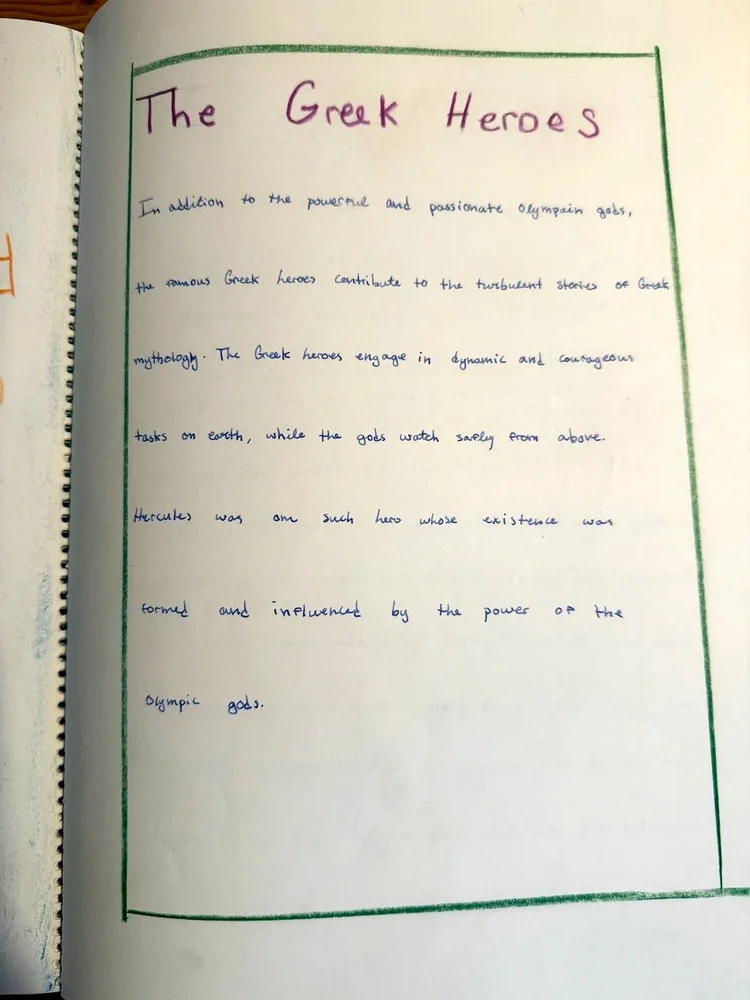 The Greek Heroes
In addition to the powerful and passionate Olympain gods,
the famous Greek heroes contribute to the turbulent stories of Greek
mythology. The Greek heroes engage in dynamic and courageous
tasks on earth, while the gods watch safly from above.
Hercules was one such hero whose existence was
formed and influenced by the power of the
Olympic gods.